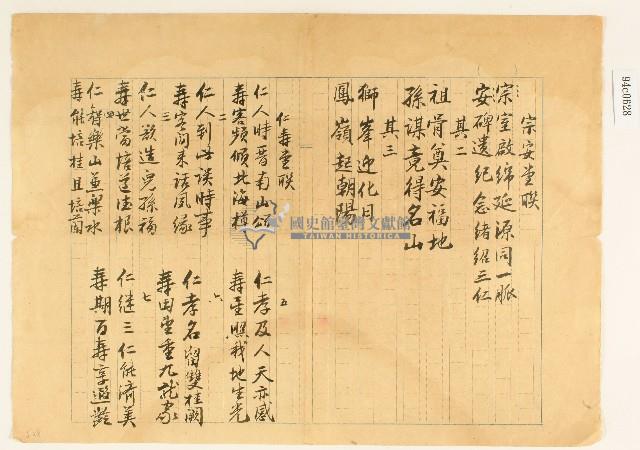 宗安堂聯
宗室啟綿延源同一脈
安碑遺紀念緒紹三仁
其二
祖骨奠安福地
孫謀竟得名山
其三
獅峯迎化日
鳳嶺起朝陽
仁壽堂聯
一
仁人時晋南山頌
壽客頻傾北海樽
二
仁人到此談時事
壽客閒來話風緣
三
仁人欲造兒孫福
壽世當培道德根
四
仁智樂山並樂水
壽能培桂且培蘭
五
仁孝及人天亦感
壽星照我地生光
六
仁孝名留雙桂闕
壽田堂重九龍家
七
仁繼三仁能濟美
壽期百壽享遐齡
國史館臺灣文獻館
TAIWAN HISTORICA
94c0628